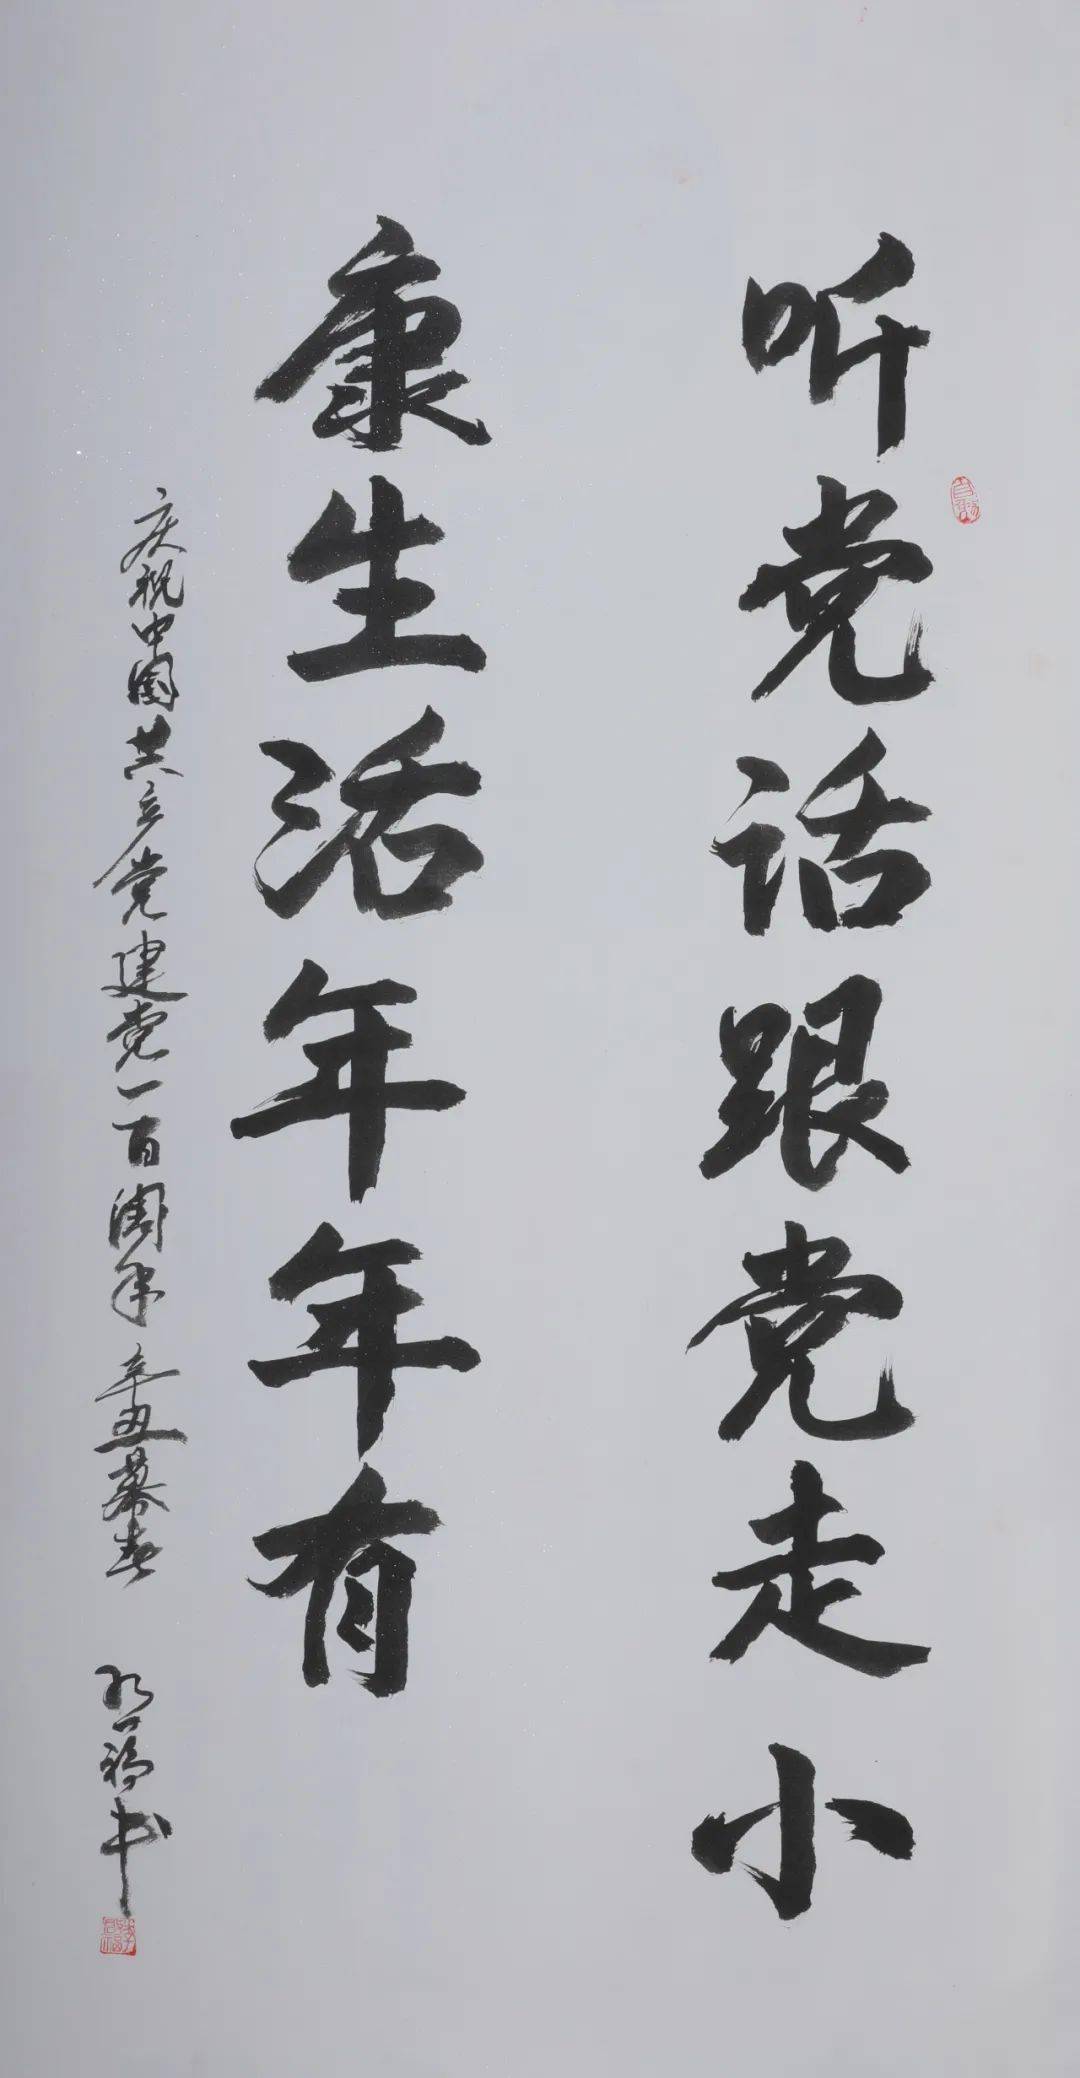 听党话跟党走小
康生活年年有
庆祝中国共产党建党一百周年 辛丑暮春
福书